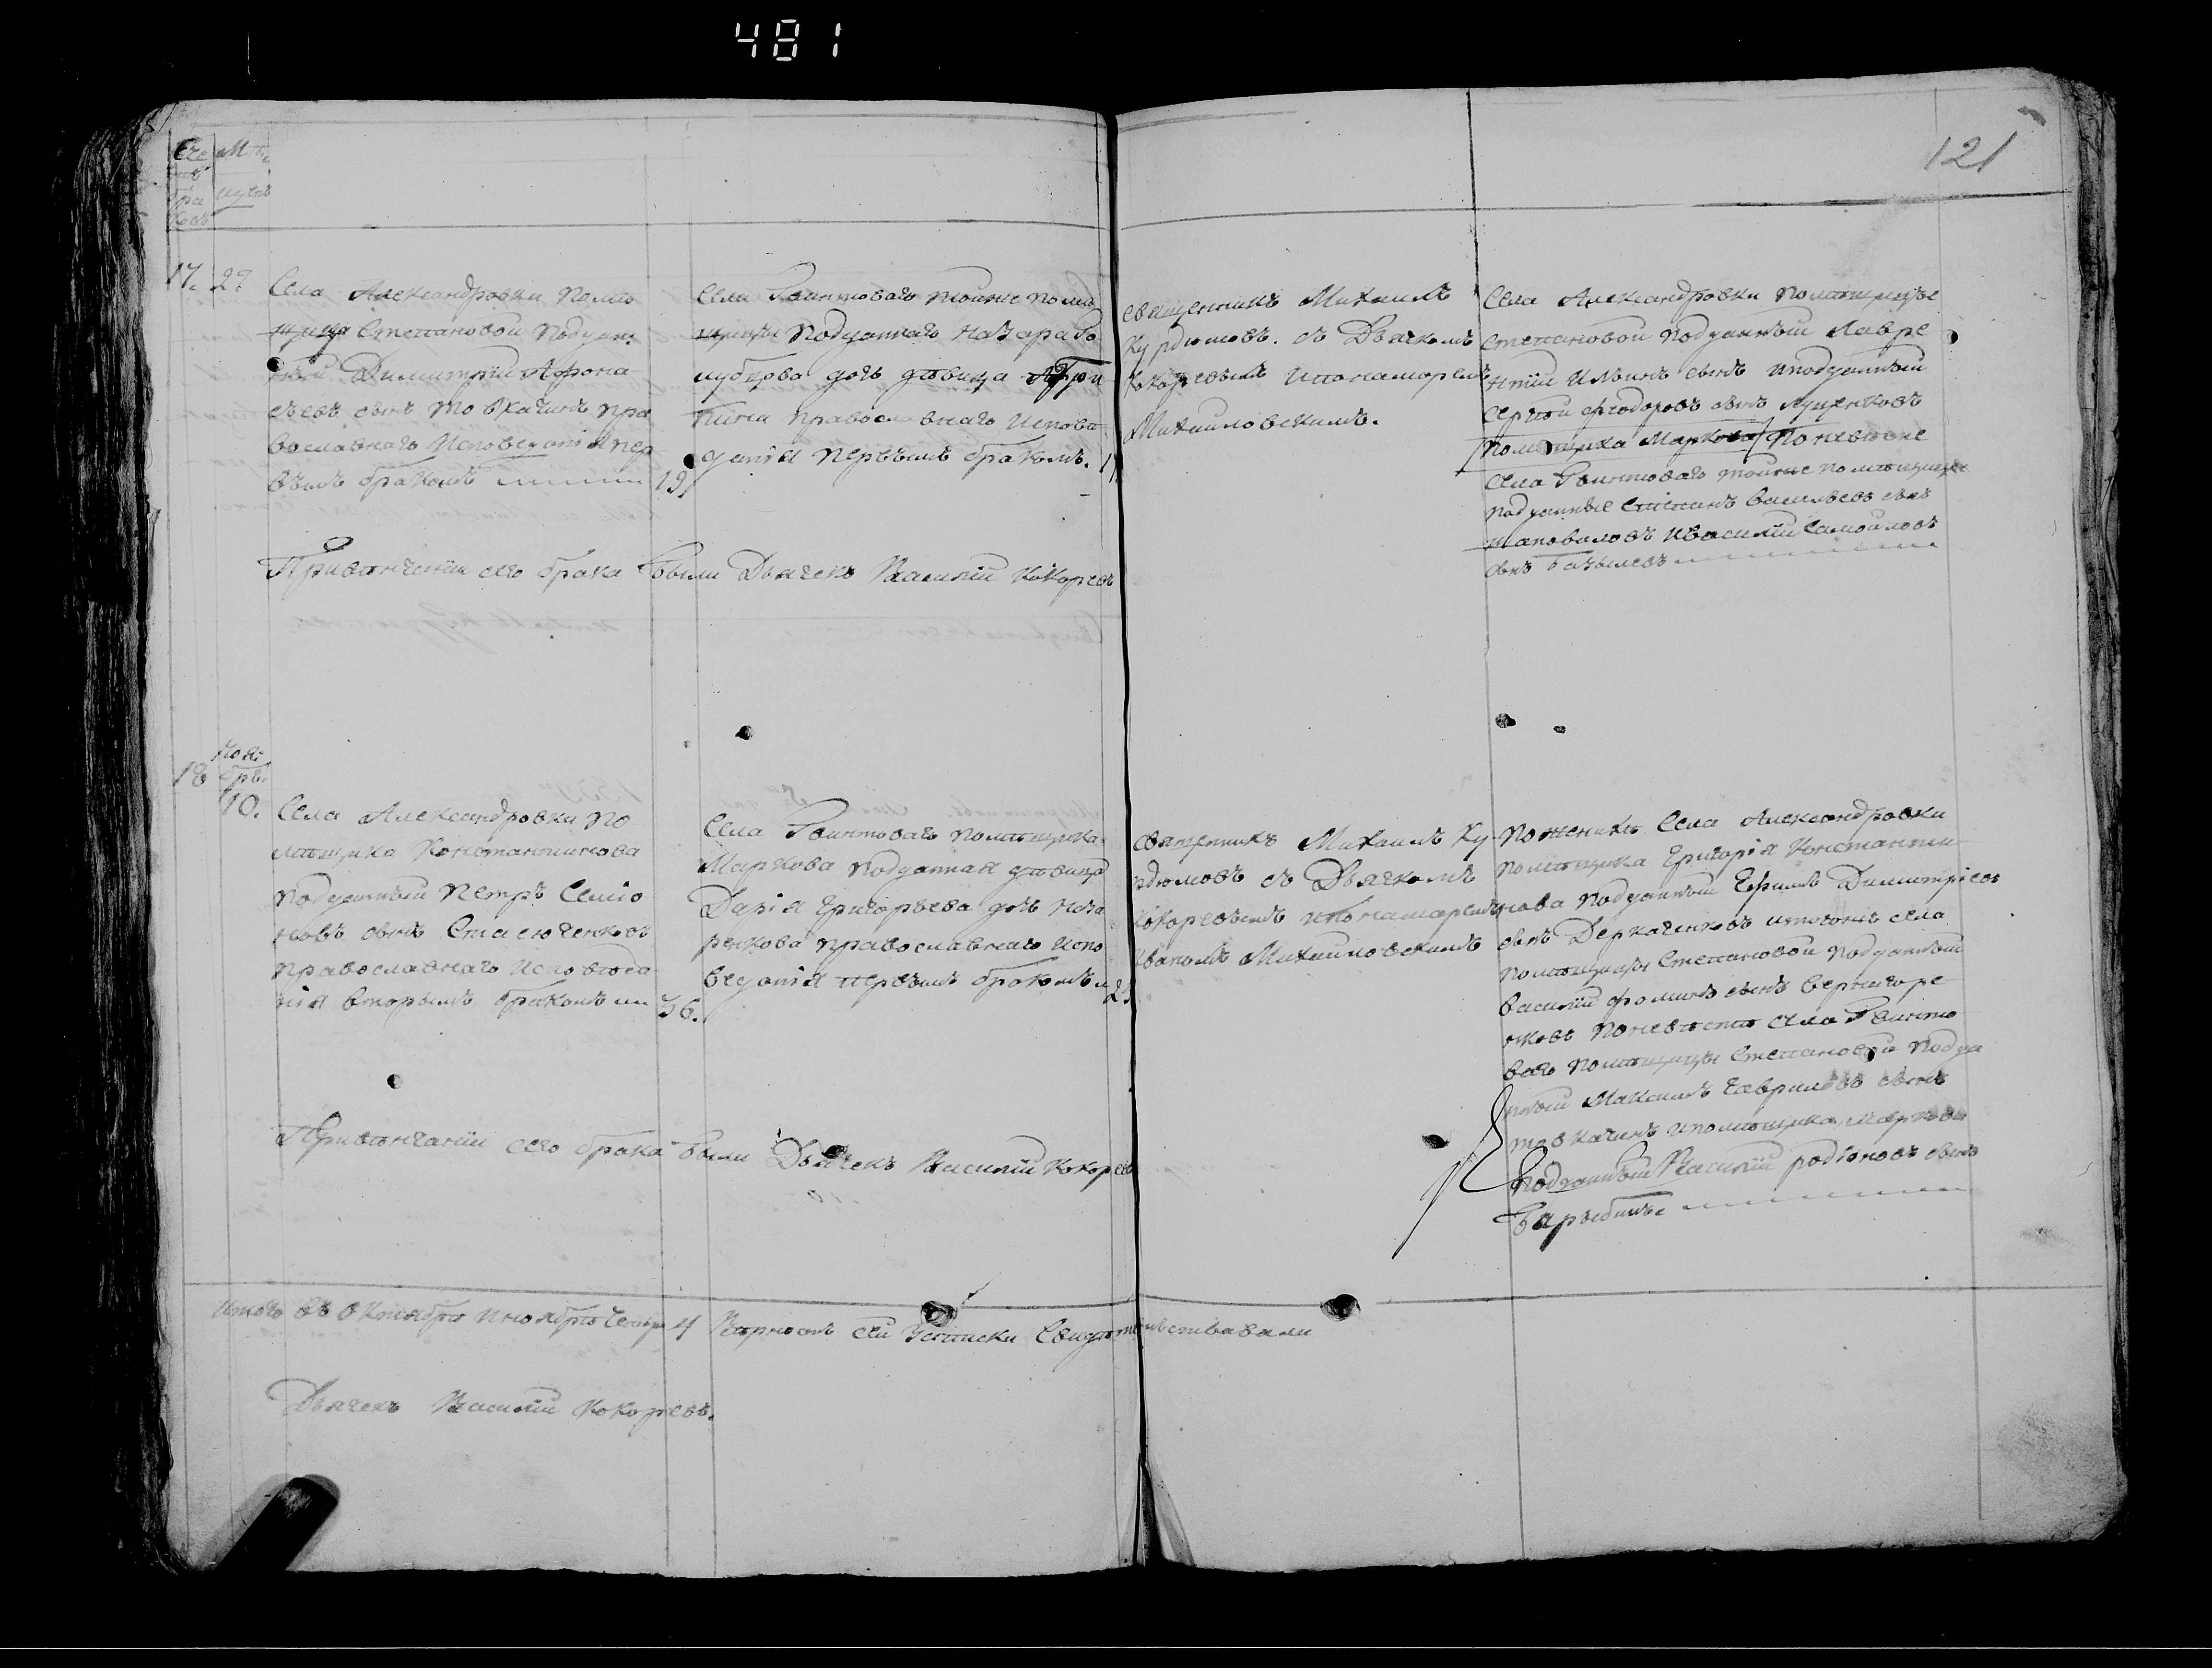 481
121
Сче
бра
ковъ
17. 22
Села Александровки поме
щицы Степановой поддан
ный Димитрій Афона
сьевъ сынъ Товкачинъ пра
вославнаго исповеданія пер
вымъ бракомъ
19.
Села Гвинтоваго тойже поме
щицы подданнаго Назара
дочь девица
православнаго испове
данія первымъ бракомъ.
священникъ Михаилъ
Курдюмовъ. съ Дьячкомъ
Кокоревымъ ипонамаремъ
Михаиловскимъ.
Села Александровки помѣщицы
Степановой подданный Лавре
нтій Ильинъ сынъ иподданный
Сергѣй Феодоровъ сынъ Луценковъ
помѣщика Маркова поневѣсте
села Гвинтоваго тойже помѣщицы
подданные Стефанъ Васильевъ сынъ
Шаповаловъ иВасилій Самойловъ
сынъ
Привѣнчаніи сего брака были Дьячекъ Василій Кокоревъ
18
Нояб
бря.
10.
Села Александровки по
мѣщика Константинова
подданный Петръ Семіо
новъ сынъ Стасюченковъ
православнаго исповѣда
нія вторымъ бракомъ
36.
Села Гвинтоваго помѣщика
Маркова подданная дѣвица
Дарія Григорьева дочь Наза
ренкова православнаго испо
веданія первымъ бракомъ
священникъ Михаилъ Ку
рдюмовъ съ Дьячкомъ
Кокоревымъ ипонамаремъ
Иваномъ Михаиловскимъ
Поженихѣ села Александровки
помѣщика Григорія Константи
нова подданный Ефимъ Димитріевъ
сынъ Деркаченковъ итогожъ села
помѣщицы Степановой подданный
Василій Фоминъ сынъ Вернигоре
нковъ поневѣсте села Гвинто
ваго помѣщицы Степановой подда
нный Максимъ Гавриловъ сынъ
Товкачинъ ипомѣщика Маркова
подданный Василій Родіоновъ сынъ
Барыбинъ
Привѣнчаніи сего брака были Дьячекъ Василій Кокоревъ
Итого въ октябрѣ иноябрѣ 4 Вѣрность сей записки свидѣтельствавали
Дьячекъ Василій Кокоревъ.